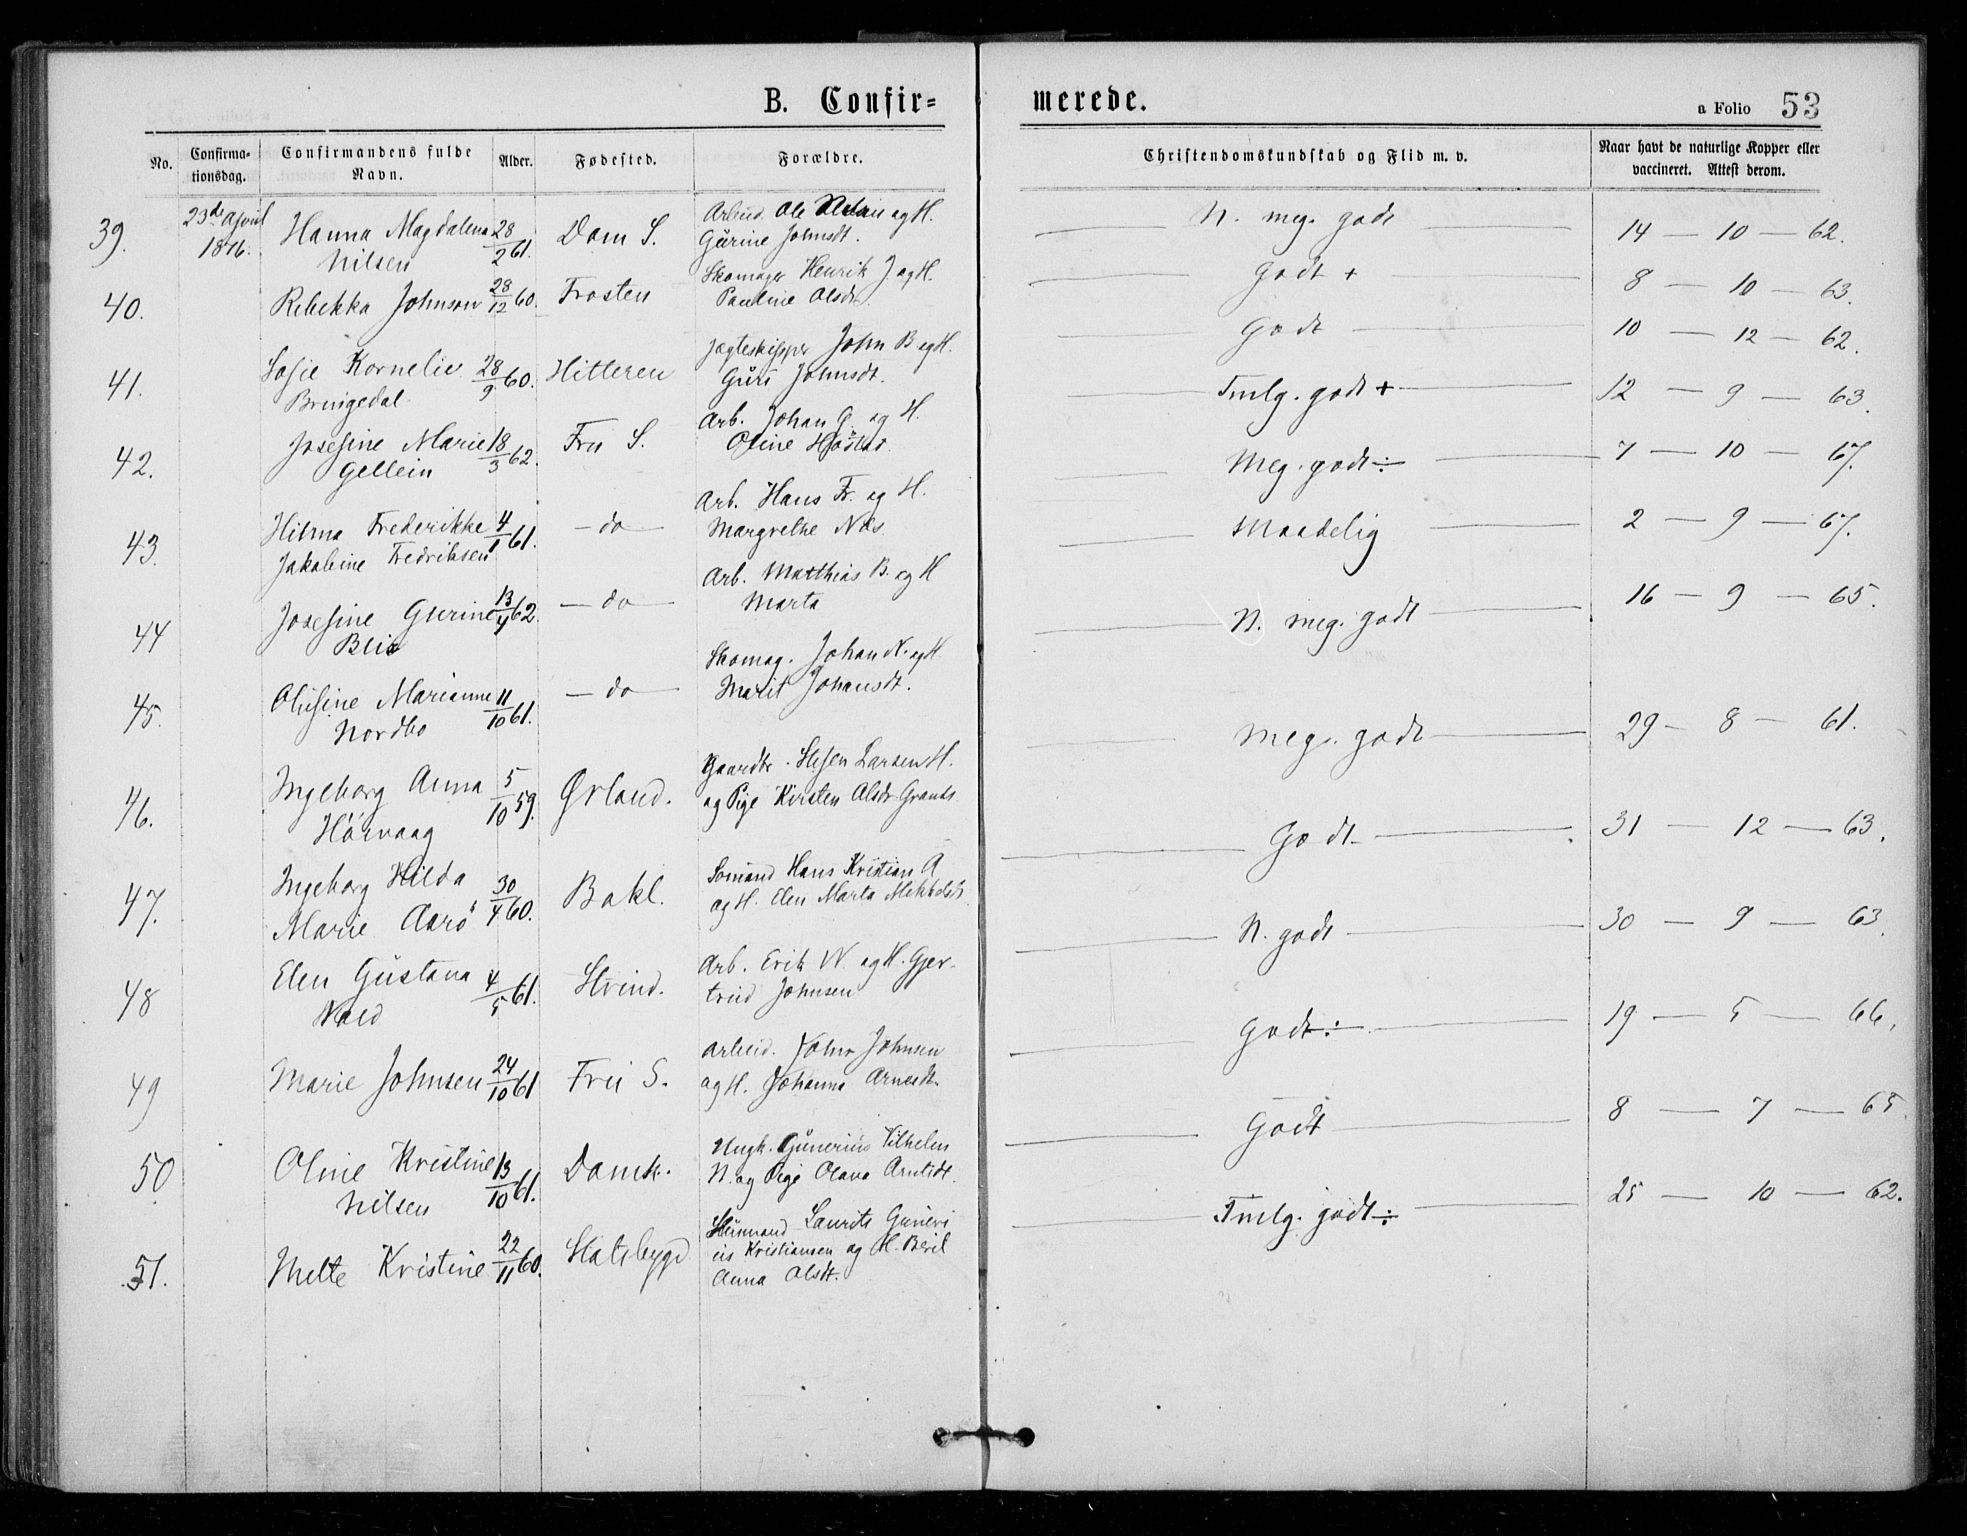 B. Confir=
merede.
a Folio 53
No. Confirma-tionsdag. Confirmandens fulde Navn. Alder. Fødested. Forældre. Christendomskundskab og Flid m. v. Naar havt de naturlige Kopper eller vaccineret. Attest derom.
39. 23de April 1876. Hanna Magdalena 28/2 61. Dom S. Arbeid. Ole og H.
Nilsen Gurine Johnsdt. N. meg. godt 14 — 10 — 62.
40. Rebekka Johnson 28/12 60. Frosten Skomager Henrik J og H.
Pauline Olsdt. Godt + 8 — 10 — 63.
41. Sofie Kornelie 28/9 60. Hitteren Jægteskipper John B og H.
Bringedal Guri Johnsdt. Godt 10 — 12 — 62.
42. Josefine Marie 18/3 62. Fru S. Arb. Johan G. og H.
Gellein Oline Tmlg. godt + 12 — 9 — 63.
43. Hilma Frederikke 4/1 61. — do — Arb. Hans Fr. og H.
Jakobine Fredriksen Margrethe Næs. Meg. godt ÷ 7 — 10 — 67.
44 Josefine Gurine 13/4 62. — do — Arb. Matthias B. og H
Marta Maadelig 2 — 9 — 67.
45. Olufine Marianne 11/10 61. — do — Skomag. Johan N. og H
Nordbo Marit Johansdt. N. meg. godt 16 — 9 — 65.
46. Ingeborg Anna 5/10 59. Ørland. Gaardbr. Stefen Larsen H.
Hårvaag og Pige Kirsten Olsdr Meg. godt 29 — 8 — 61.
47. Ingeborg Hilda 30/4 60. Bakl. Sømand Hans Kristian A
Marie Aarø og H. Elen Marta Godt 31 — 12 — 63.
48 Elen Gustava 4/5 61. Strind. Arb. Erik W. og H. Gjer-
trud Johnsen N. godt 30 — 9 — 63.
49 Marie Johnsen 24/10 61 Fru S. Arbeid. John Johnsen
og H. Johanna Arnesdt. Godt ÷ 19 — 5 — 66.
50 Oline Kristine 13/10 61. Domk. Ungk. Gunerius Vilhelm
Nilsen N. og Pige Olava Arntsdt. Godt 8 — 7 — 65.
51. Mette Kristine 22/11 60. Statsbygd Laurits Guneri
us Kristiansen og H. Beril
Anna Olsdt. Tmlg. godt ÷ 25 — 10 — 62.